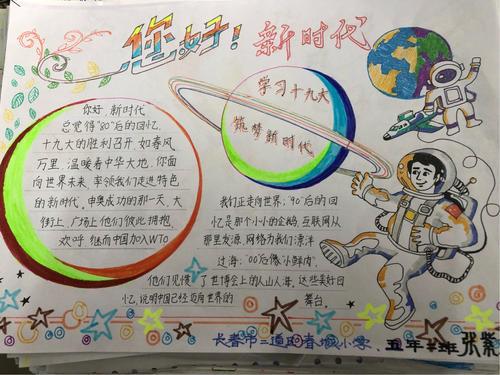 您好！新时代
学习十九大
筑梦新时代
你好，新时代
总觉得"80"后的回忆，
十九大的胜利召开，如春风
万里，温暖着中华大地，你面
向世界未来，率领我们走进特色
的新时代，申奥成功的那一天，大
街上，广场上他们彼此拥抱，
欢呼，继而中国加入WTO
我们正走向世界；"90"后的回
忆是那个小小的企鹅，互联网从
那里发源，网络为我们漂洋
过海；"00"后像"小鲜肉"，
他们见惯了世博会上的人山人海，这些美好回
忆，说明中国已经迈向世界的舞台。
长春市二道区春城小学、五年班 张紫